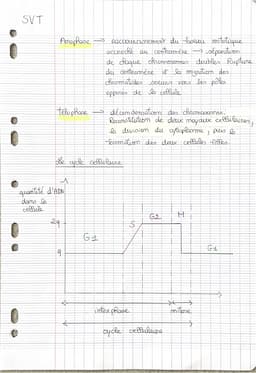 SVT
Anaphase → raccourcissement du fuseau mitotique
accroché au centromère → séparation
de chaque chromosomes doubles. Rupture
du centromère et la migration des
chromatides soeurs vers les pôles
opposés de la cellule.
Télophase → décondensation des chromosomes.
Reconstitution de deux noyaux cellulaires,
la division du cytoplasme, puis la
formation des deux cellules filles.
Le cycle cellulaire
quantité d'ADN
dans la
cellule
2q
q
G1
S
G2
M
G1
interphase
mitose
cycle cellulaire